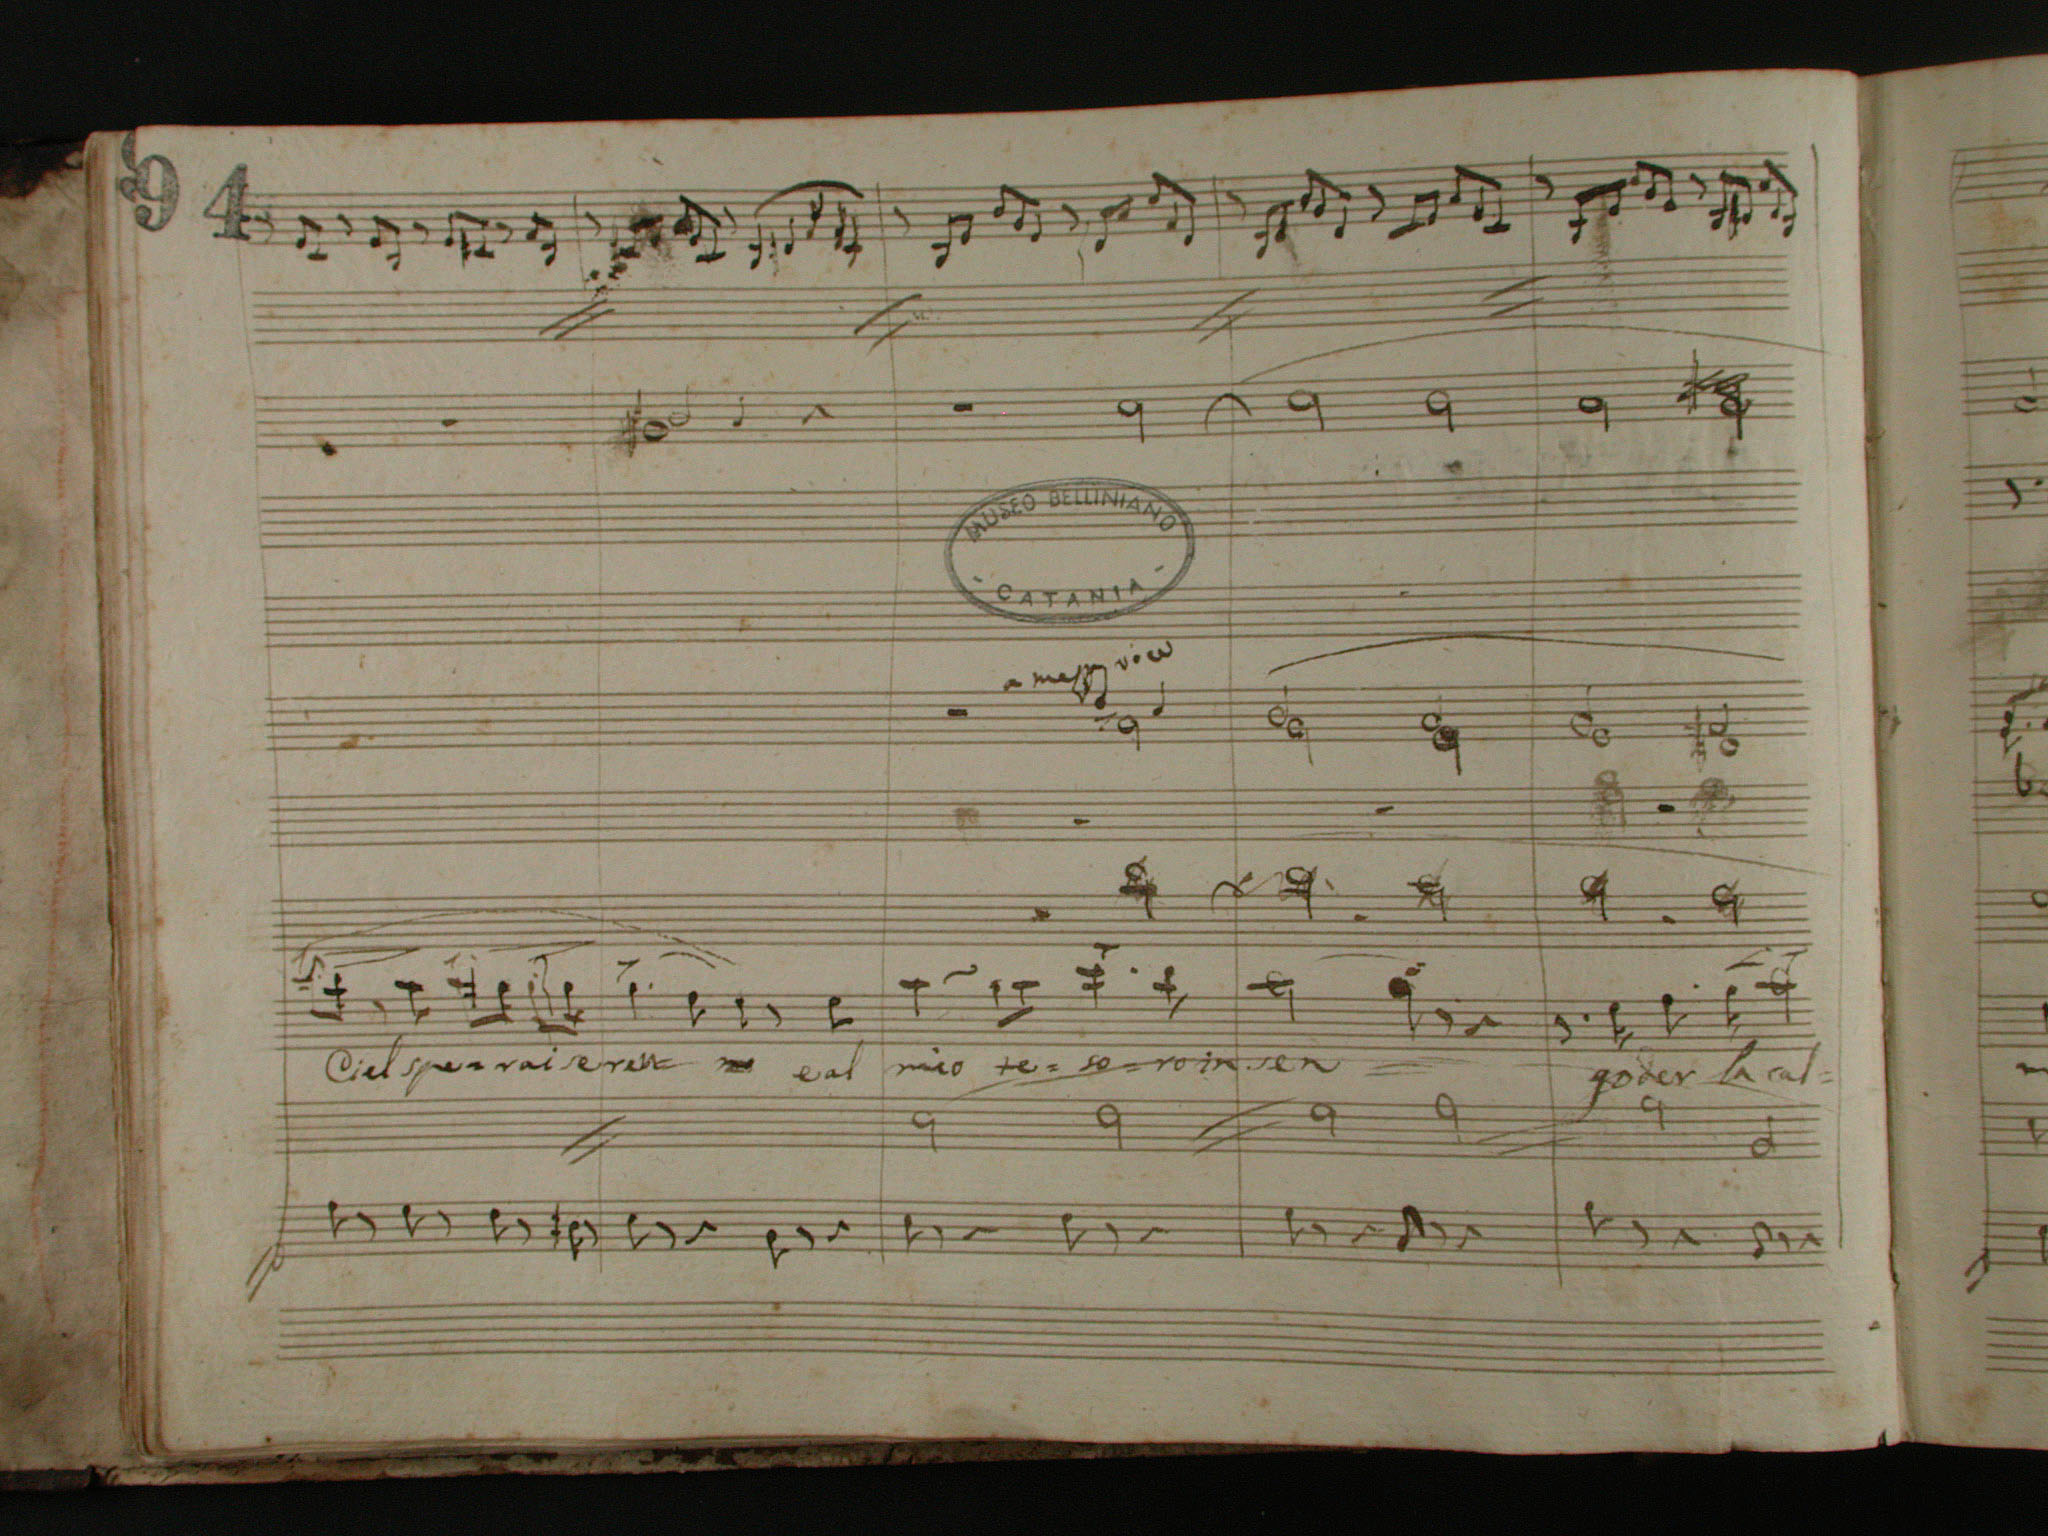 94
MUSEO BELLINIANO
- CATANIA -
a mezza voce
Ciel spe=rai sere= e al mio te=so=ro in sen goder la cal=